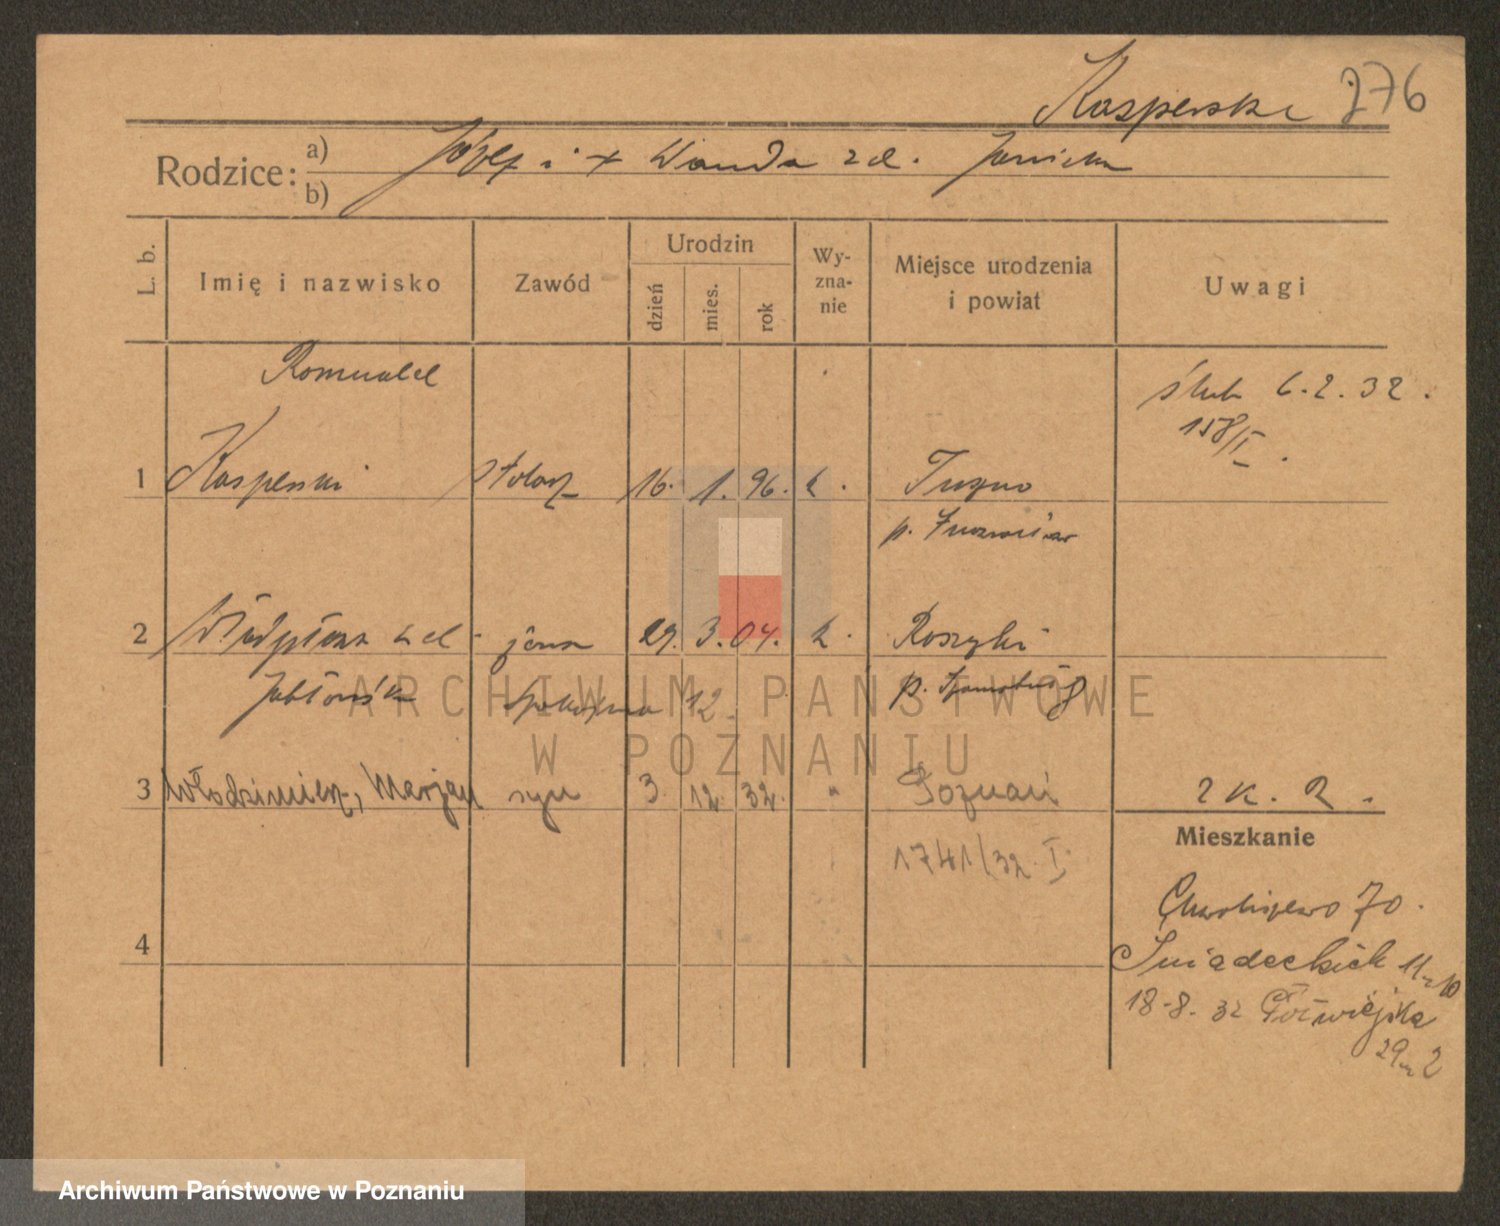 Kasperski 276
Rodzice: a) Józef i + Wanda zd. Janicka
b)
L. b. Imię i nazwisko Zawód Urodzin dzień mies. rok Wyznanie Miejsce urodzenia i powiat Uwagi
Romuald ślub 6.2.32.
158/I
1 Kasperski stolarz 16. 1. 96. k. Tuczno
p. Inowrocław
2 zd. żona 29. 3. 04. k. Roszyki
Jabłońska 12
3 Włodzimierz, Marjan syn 3. 12. 32. " Poznań 2 K. R.
Mieszkanie
1741/32 I
Chwaliszewo 70.
4
Śniadeckich 11 m 10
18-8. 32 Półwiejska
29 m 2
ARCHIWUM PAŃSTWOWE
W POZNANIU
Archiwum Państwowe w Poznaniu